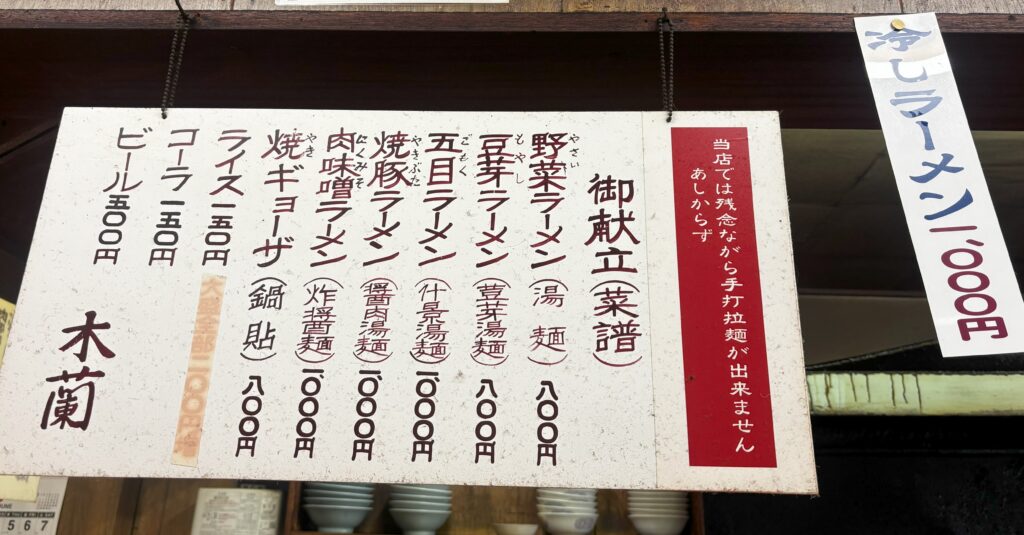 冷しラーメン 1,000円
当店では残念ながら手打拉麺が出来ません
あしからず
御献立(菜譜)
野菜ラーメン(湯麺)八〇〇円
やさい
豆芽ラーメン(荳芽湯麺)八〇〇円
もやし
五目ラーメン(什景湯麺)一、〇〇〇円
ごもく
焼豚ラーメン(醤肉湯麺)一、〇〇〇円
やきぶた
肉味噌ラーメン(炸醤麺)一、〇〇〇円
にくみそ
焼ギョーザ(鍋貼)八〇〇円
やき
ライス 一五〇円
コーラ 一五〇円
ビール 五〇〇円
木蘭
5 6 7